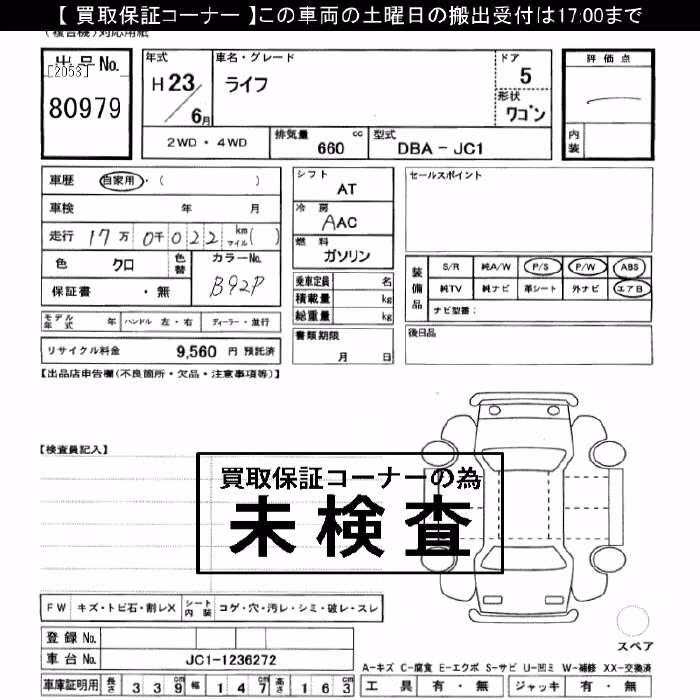 【 買取保証コーナー 】この車両の土曜日の搬出受付は17:00まで
(複合機)対応用紙
出品No.
[2053]
80979
年式
H23/6月
車名・グレード
ライフ
ドア
5
形状
ワゴン
評価点
内装
2WD・4WD
排気量 660 cc
型式 DBA－JC1
車歴 自家用・( )
車検 年 月
走行 17万0千022 km マイル( )
色 クロ 色替
カラーNo.
B92P
保証書 ・無
モデル年式 年 ハンドル 左・右 ディーラー・並行
リサイクル料金 9,560 円 預託済
シフト
AT
冷房
AAC
燃料
ガソリン
乗車定員 名
積載量 kg
総重量 kg
書類期限
月 日
セールスポイント
装備品
S/R 純A/W P/S P/W ABS
純TV 純ナビ 革シート 外ナビ エアB
ナビ型番:
後日品
【出品店申告欄(不良箇所・欠品・注意事項等)】
【検査員記入】
買取保証コーナーの為
未検査
FW キズ・トビ石・割レX シート内装 コゲ・穴・汚レ・シミ・破レ・スレ
登録No.
車台No. JC1-1236272
車庫証明用 長さ 339cm 幅 147cm 高さ 163cm
スペア
A-キズ C-腐食 E-エクボ S-サビ U-凹ミ W-補修 XX-交換済
工具 有・無 ジャッキ 有・無